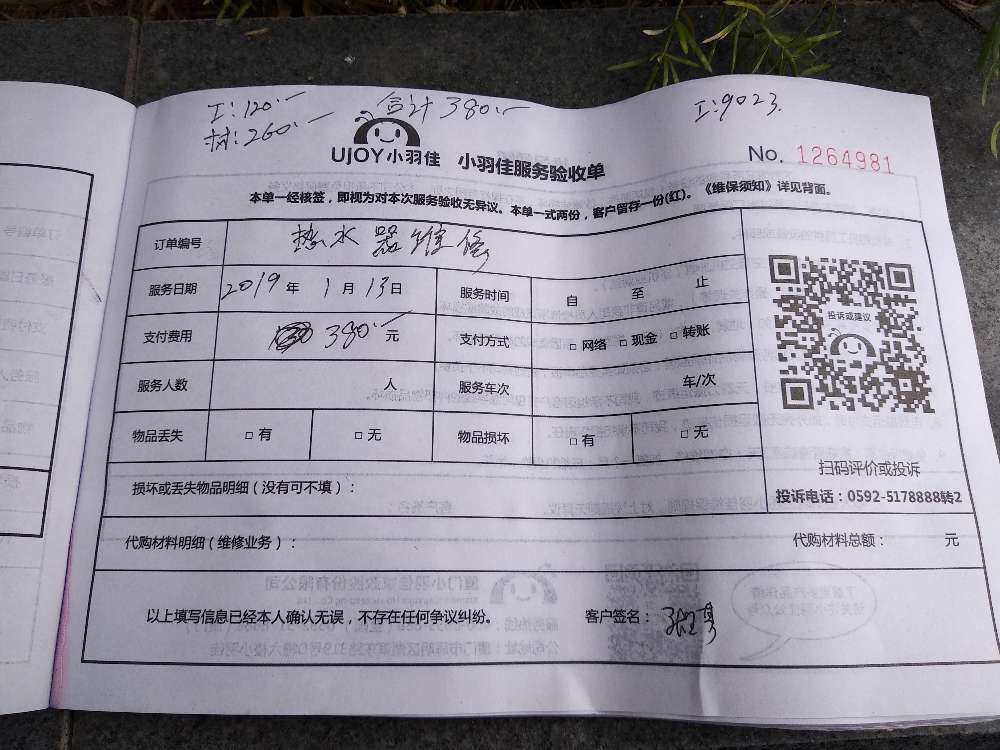 工:120.— 合计380.— 工:9023.
材:260.—
UJOY小羽佳 小羽佳服务验收单 No. 1264981
本单一经核签，即视为对本次服务验收无异议。本单一式两份，客户留存一份(红)。《维保须知》详见背面。
订单编号 热水器维修
服务日期 2019年1月13日 服务时间 自 至 止
投诉或建议
支付费用 380.—元 支付方式 □ 网络 □ 现金 □ 转账
服务人数 人 服务车次 车/次
物品丢失 □ 有 □ 无 物品损坏 □ 有 □ 无
扫码评价或投诉
损坏或丢失物品明细（没有可不填）： 投诉电话：0592-5178888转2
代购材料明细（维修业务）： 代购材料总额： 元
以上填写信息已经本人确认无误，不存在任何争议纠纷。 客户签名：